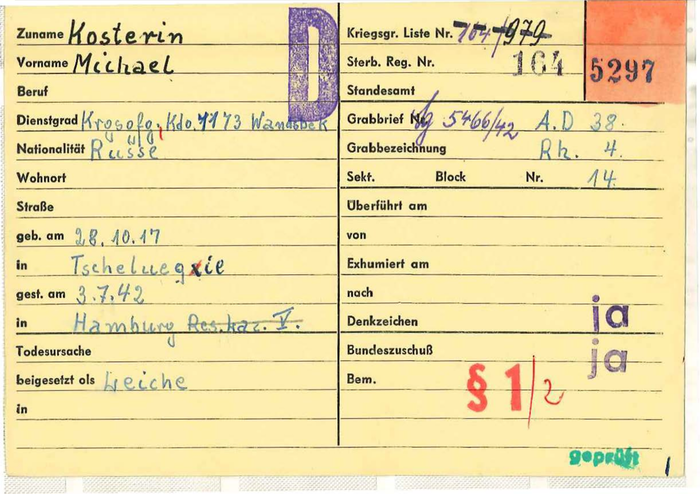 Zuname Kosterin
Vorname Michael
Beruf
Dienstgrad Krgsgfg. Kdo. 1173 Wandsbek
Nationalität Russe
Wohnort
Straße
geb. am 28.10.17
in
gest. am 3.7.42
in Hamburg Res.Laz. V.
Todesursache
beigesetzt als Leiche
in
D
Kriegsgr. Liste Nr. 164/979
Sterb. Reg. Nr. 164
5297
Standesamt
Grabbrief Nr. 5466/42 A.D 38.
Grabbezeichnung Rh. 4.
Sekt. Block Nr. 14.
Überführt am
von
Exhumiert am
nach
Denkzeichen ja
Bundeszuschuß ja
Bem. § 1/2
geprüft